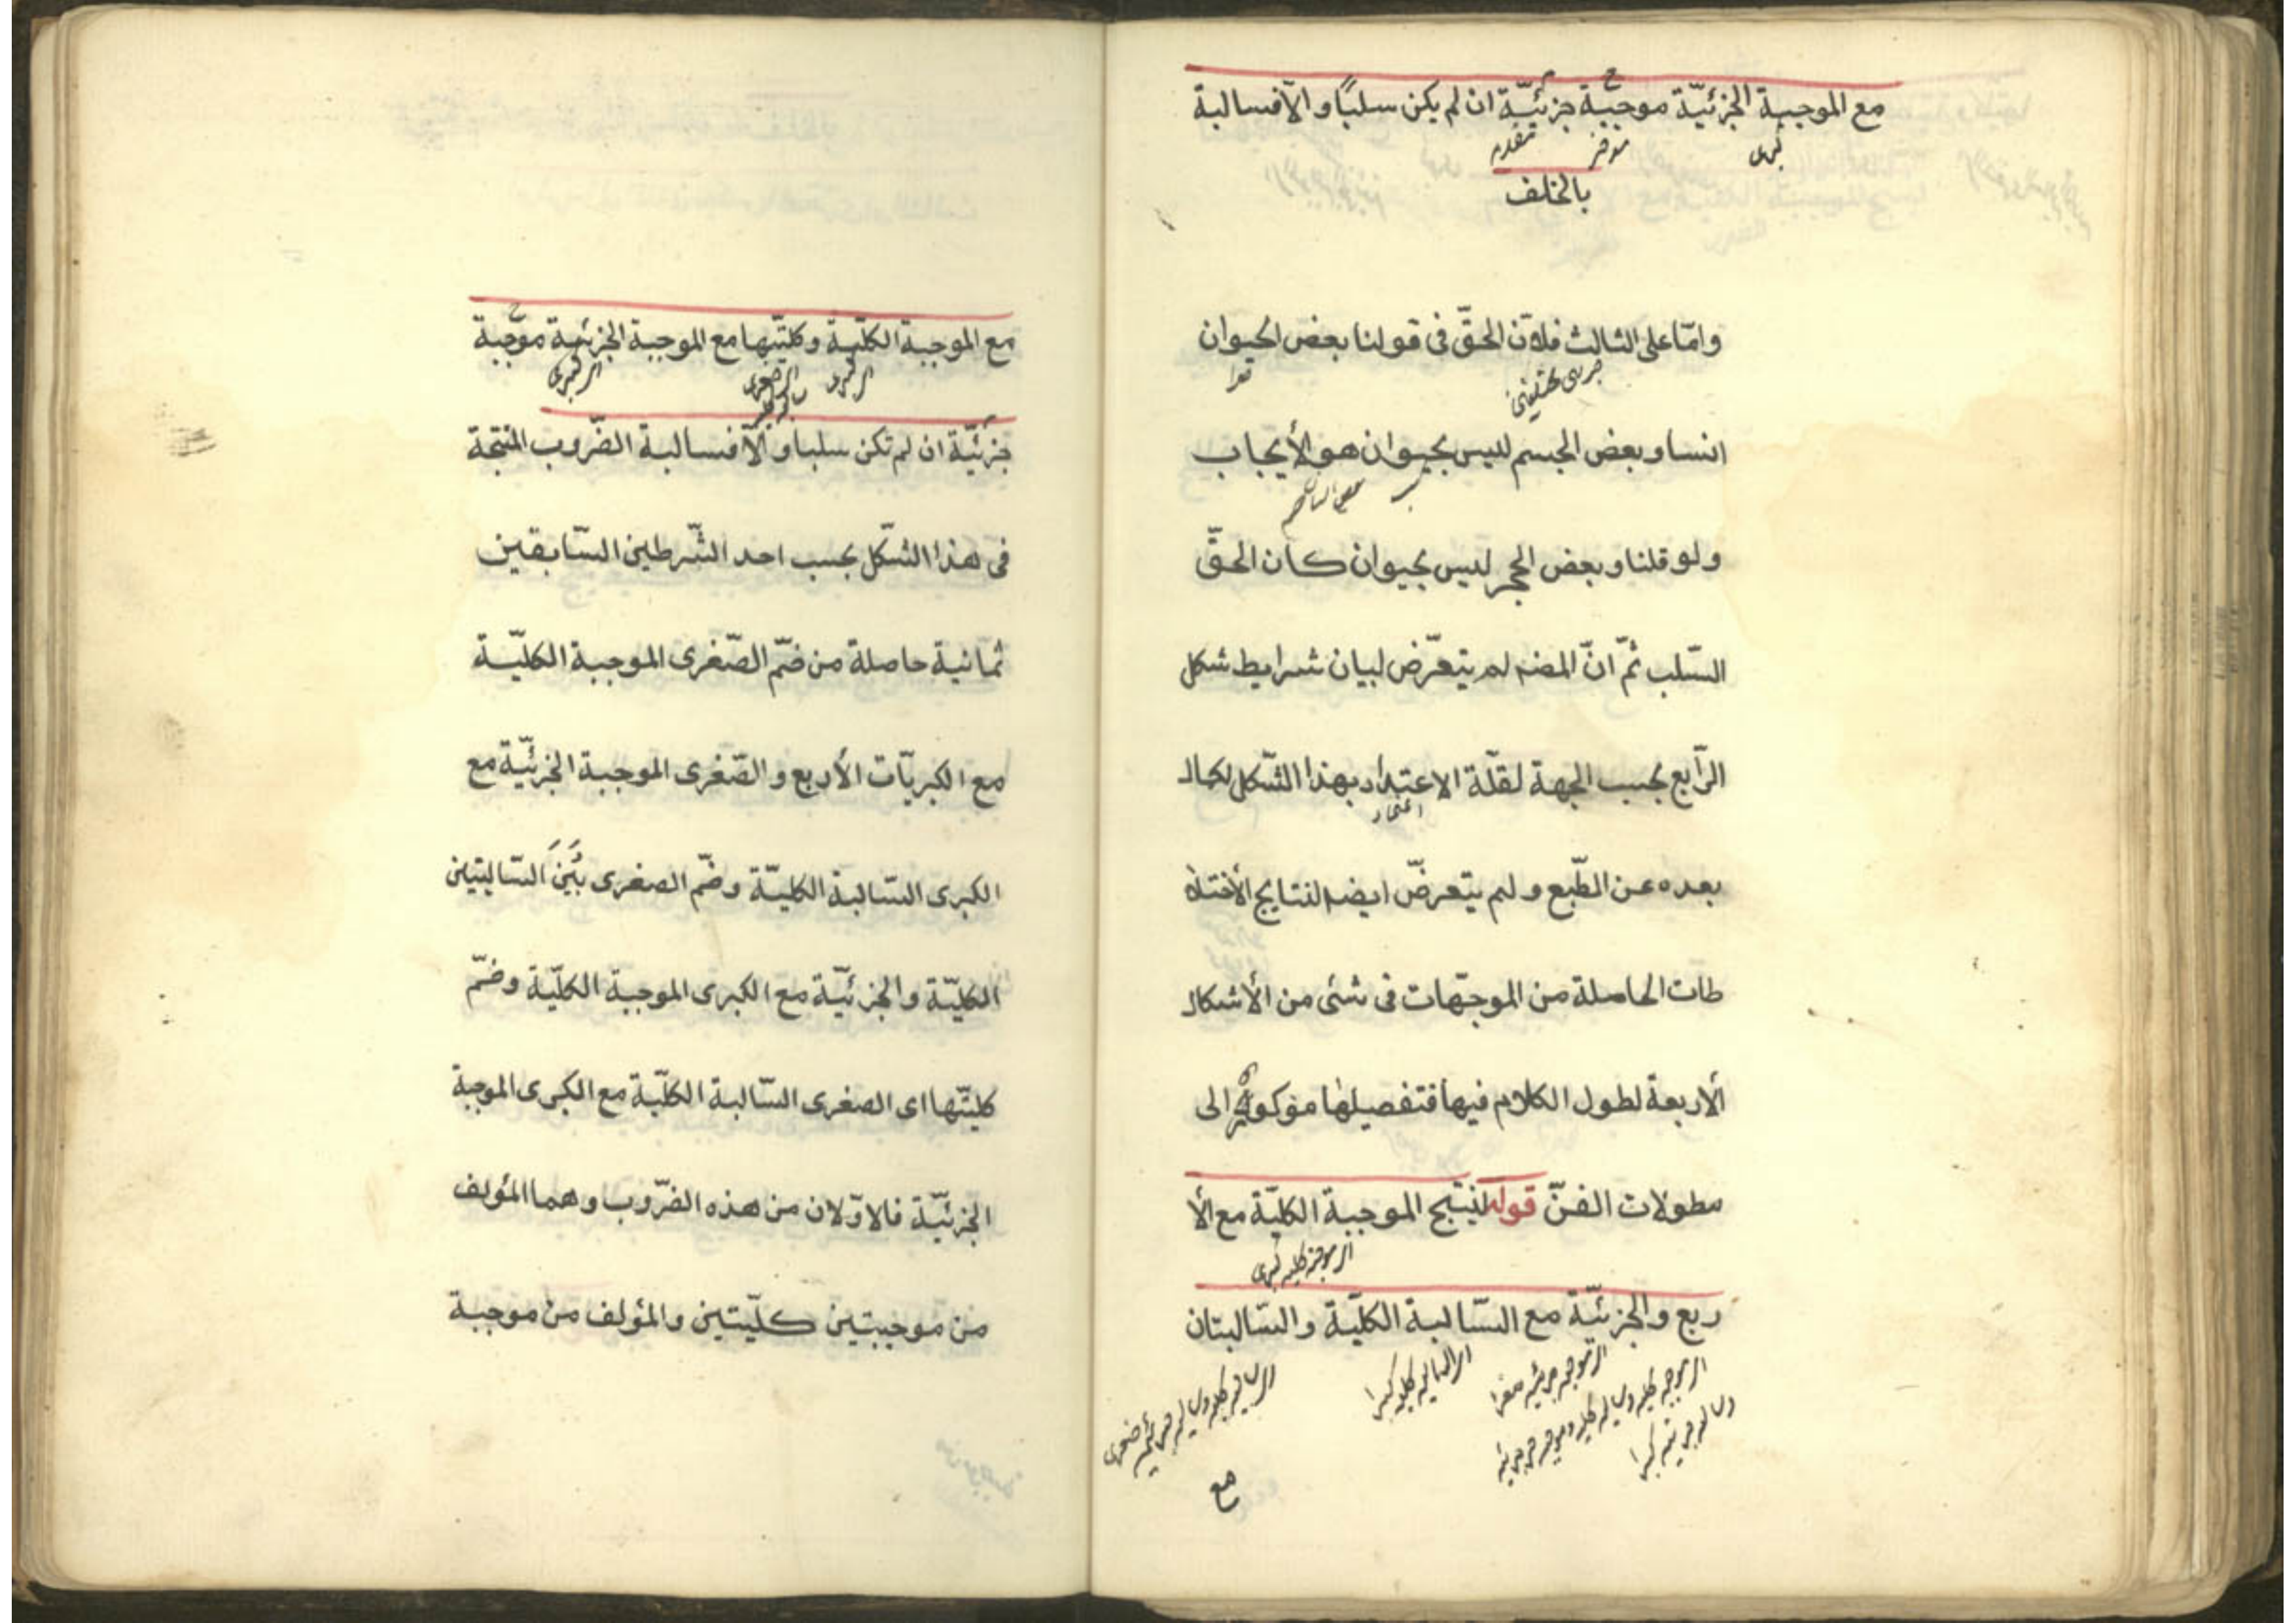 مع الموجبة الجزئيّة موجبة جزئيّة ان لم يكن سلبًا و الّا فسالبة
كبرى
مؤخر
مقدم
بالخلف
وامّا على الثالث فلانّ الحقّ فى قولنا بعض الحيوان
انسا وبعض الجسم ليس بحيوان هو الأيجاب
ولو قلنا وبعض الحجر ليس بحيوان كان الحقّ
السّلب ثمّ انّ المصنه لم يتعرّض لبيان شرايط شكل
الرّابع بحسب الجهة لقلّة الاعتداد بهذا الشّكل لكمال
بعده عن الطّبع و لم يتعرضّ ايضه لنتايج الأختلا
طات الحاصلة من الموجّهات فى شئى من الأشكال
ألاربعة لطول الكلام فيها فتفصيلها موكول الى
مطولات الفنّ قوله لينتج الموجبة الكليّة مع الأ
ربع والجزئيّة مع السّالبة الكليّة والسّالبتان
مع
مع الموجبة الكلّيّة وكليّتها مع الموجبة الجزئيّة موجبة
جزئيّة ان لم تكن سلبا و الّا فسالبة الضّروب المنتجة
فى هذا الشّكل بحسب احد الشّرطين السّابقين
ثمانية حاصلة من ضمّ الصّغرى الموجبة الكليّة
مع الكبريّات الأربع و الصّغرى الموجبة الجزئيّة مع
الكبرى السّالبة الكليّة وضمّ الصغرى بَيَنَ السّالبتين
الكليّة والجزئيّة مع الكبرى الموجبة الكلّيّة وضمّ
كليّتها اى الصغرى السّالبة الكليّة مع الكبرى الموجبة
الجزئيّة فالاوّلان من هذه الضّروب وهما المؤلف
من موجبتين كلّيتين والمؤلف من موجبة